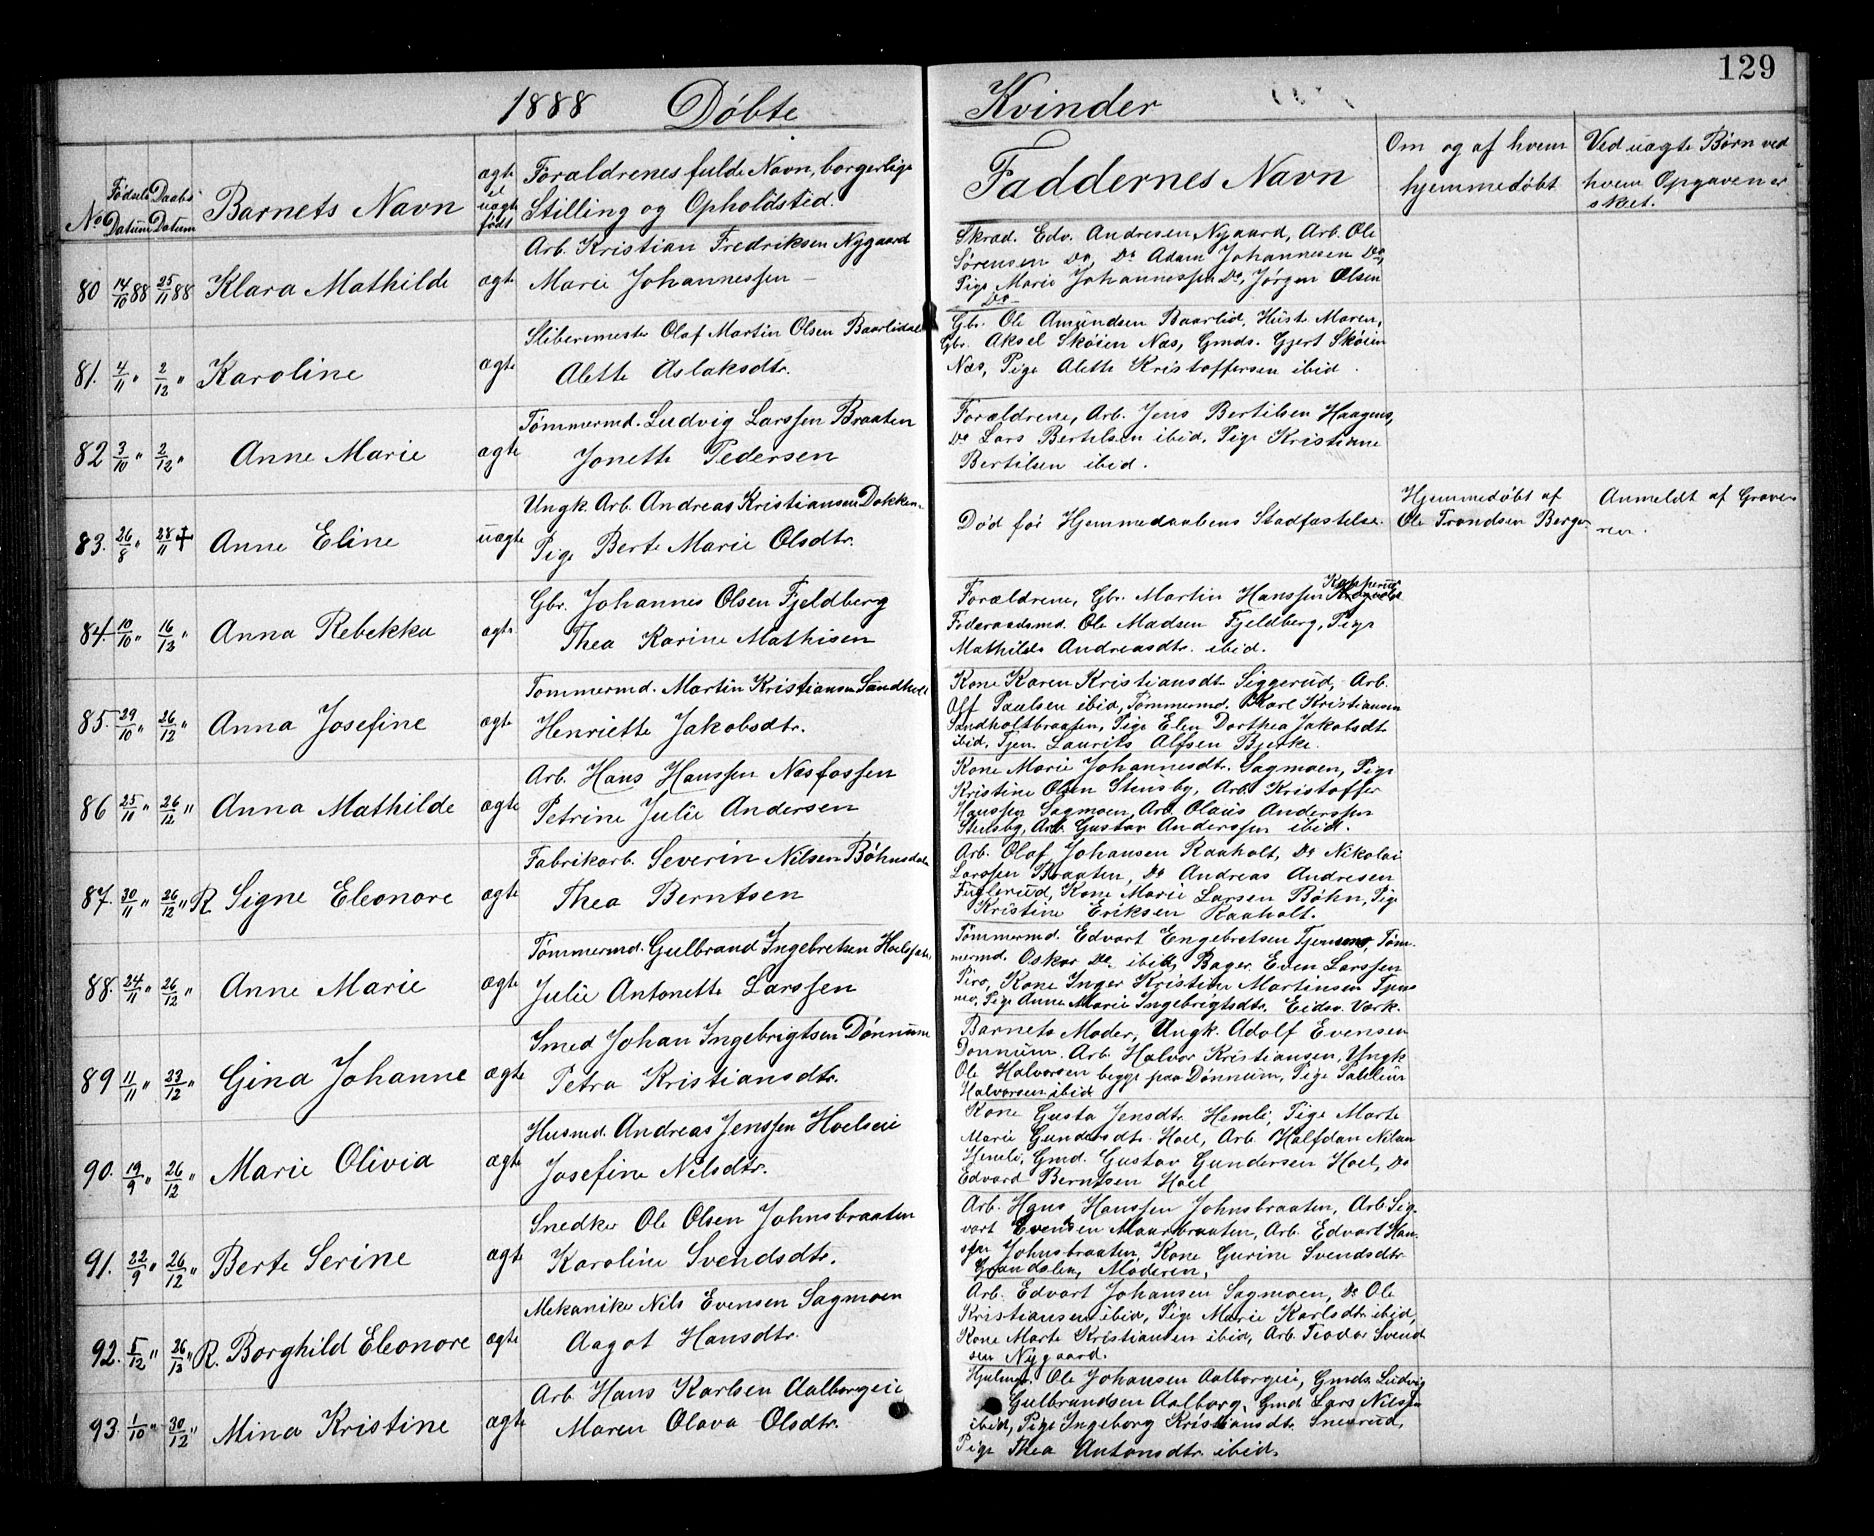 129
1888 Døbte Kvinder
No
Fødsels Datum
Daabs Datum
Barnets Navn
ægte el uægte født
Forældrenes fulde Navn, borgerlige
Stilling og Opholdsted.
Faddernes Navn
Om og af hvem
hjemmedøbt
Ved uægte Børn ved
hvem Opgaven er
skeet.
80 14/10 88 25/11 88 Klara Mathilde ægte
Arb. Kristian Fredriksen Nygaard
Marie Johannessen –
Skræd. Edv. Andresen Nygaard, Arb. Ole
Sørensen Do, Do Adam Johannesen Do,
Pige Marie Johannessen Do, Jørgen Olsen
Do
81. 4/11 " 2/12 " Karoline ægte
Sliberemester Olaf Martin Olsen Baarlidalen
Alette Aslaksdtr.
Gbr. Ole Amundsen Baarlid, Hustr. Maren,
Gbr. Aksel Skøien Næs, Gmds. Gjert Skøien
Næs, Pige Alette Kristoffersen ibid.
82 3/10 " 2/12 " Anne Marie ægte
Tømmermd. Ludvig Larssen Braaten
Jonette Pedersen
Forældrene, Arb. Jens Bertilsen Haagens,
Do Lars Bertilsen ibid, Pige Kristiane
Bertilsen ibid.
83. 26/8 " 28/11 † Anne Eline uægte
Ungk. Arb. Andreas Kristiansen Dokken
Pige Berte Marie Olsdtr.
Død før Hjemmedaabens Stadfæstelse.
Hjemmedøbt af
Ole Trondsen Berger
Anmeldt af Graveren.
84. 10/10 " 16/12 " Anna Rebekka ægte
Gbr. Johannes Olsen Fjeldberg
Thea Karine Mathisen
Forældrene, Gbr. Martin Hanssen Kopperud
Føderaadsmd. Ole Madsen Fjeldberg, Pige
Mathilde Andreasdtr. ibid.
85. 29/10 " 26/12 " Anna Josefine ægte
Tømmermd. Martin Kristiansen Sandholt
Henriette Jakobsdtr.
Kone Karen Kristiansdtr Siggerud, Arb.
Olf Paulsen ibid, Tømmermd. Karl Kristiansen
Sandholtbraaten, Pige Elen Dorthea Jakobsdtr
ibid, Tjen. Laurits Alfsen Bjerke.
86 25/11 " 26/12 " Anna Mathilde ægte
Arb. Hans Hanssen Næsfossen
Petrine Julie Andersen
Kone Marie Johannesdtr. Sagmoen, Pige
Kristine Olsen Stensby, Arb. Kristoffer
Hanssen Sagmoen, Arb. Olaus Anderssen
Stensby, Arb. Gustav Anderssen ibid.
87. 30/11 " 26/12 " R. Signe Eleonore ægte
Fabrikarb. Severin Nilsen Bøhnsdalen
Thea Berntsen
Arb. Olaf Johansen Raaholt, Do Nikolai
Larssen Braaten, Do Andreas Andresen
Fuglerud, Kone Marie Larsen Bøhn, Pige
Kristine Eriksen Raaholt.
88. 24/11 " 26/12 " Anne Marie ægte
Tømmermd. Gulbrand Ingebretsen
Julie Antonette Larssen
Tømmermd. Edvart Engebretsen Tjensmo, Tøm-
mermd. Oskar Do. ibid, Bager Even Larssen
Piro, Kone Inger Kristine Martinsen Tjens
mo, Pige Anne Marie Ingebrigtsdtr. Eidsv. Værk.
89 11/11 " 23/12 " Gina Johanne ægte
Smed Johan Ingebrigtsen Dønnum
Petra Kristiansdtr.
Barnets Moder, Ungk. Adolf Evensen
Dønnum. Arb. Halvor Kristiansen, Ungk
Ole Halvorsen begge paa Dønnum, Pige Pauline
Halvorsen ibid
90. 19/9 " 26/12 " Marie Olivia ægte
Husmd. Andreas Jenssen Hoelseie
Josefine Nilsdtr.
Kone Gusta Jensdtr. Hemli, Pige Marte
Marie Gundersdtr. Hoel, Arb. Halfdan Nilsen
Hemli, Gmd. Gustav Gundersen Hoel, Do
Edvard Berntsen Hoel
91. 22/9 " 26/12 " Berte Serine ægte
Snedker Ole Olsen Johnsbraaten
Karoline Svendsdtr.
Arb. Hans Hanssen Johnsbraaten, Arb. Sig-
vart Evensen Maurbraaten, Arb. Edvart Han-
ssen Johnsbraaten, Kone Gurine Svendsdtr
Moderen.
92. 5/12 " 26/12 " R. Borghild Eleonore ægte
Mekaniker Nils Evensen Sagmoen
Aagot Hansdtr.
Arb. Edvart Johansen Sagmoen, Do Ole
Kristiansen ibid, Pige Marie Karlsdtr ibid,
Kone Marte Kristiansen ibid, Arb. Teodor Svend
sen Nygaard.
93. 1/10 " 30/12 " Mina Kristine ægte
Arb. Hans Karlsen Aalborgeie
Maren Olava Olsdtr.
Hjulm. Ole Johansen Aalborgeie, Gmds. Ludvig
Gulbrandsen Aalborg, Gmd Lars Nilsen
ibid, Pige Ingeborg Kristiansdtr. Snesrud,
Pige Thea Antonsdtr ibid.